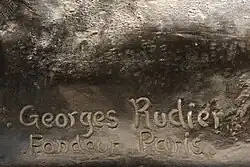 Georges Rudier
Fondeur. Paris.